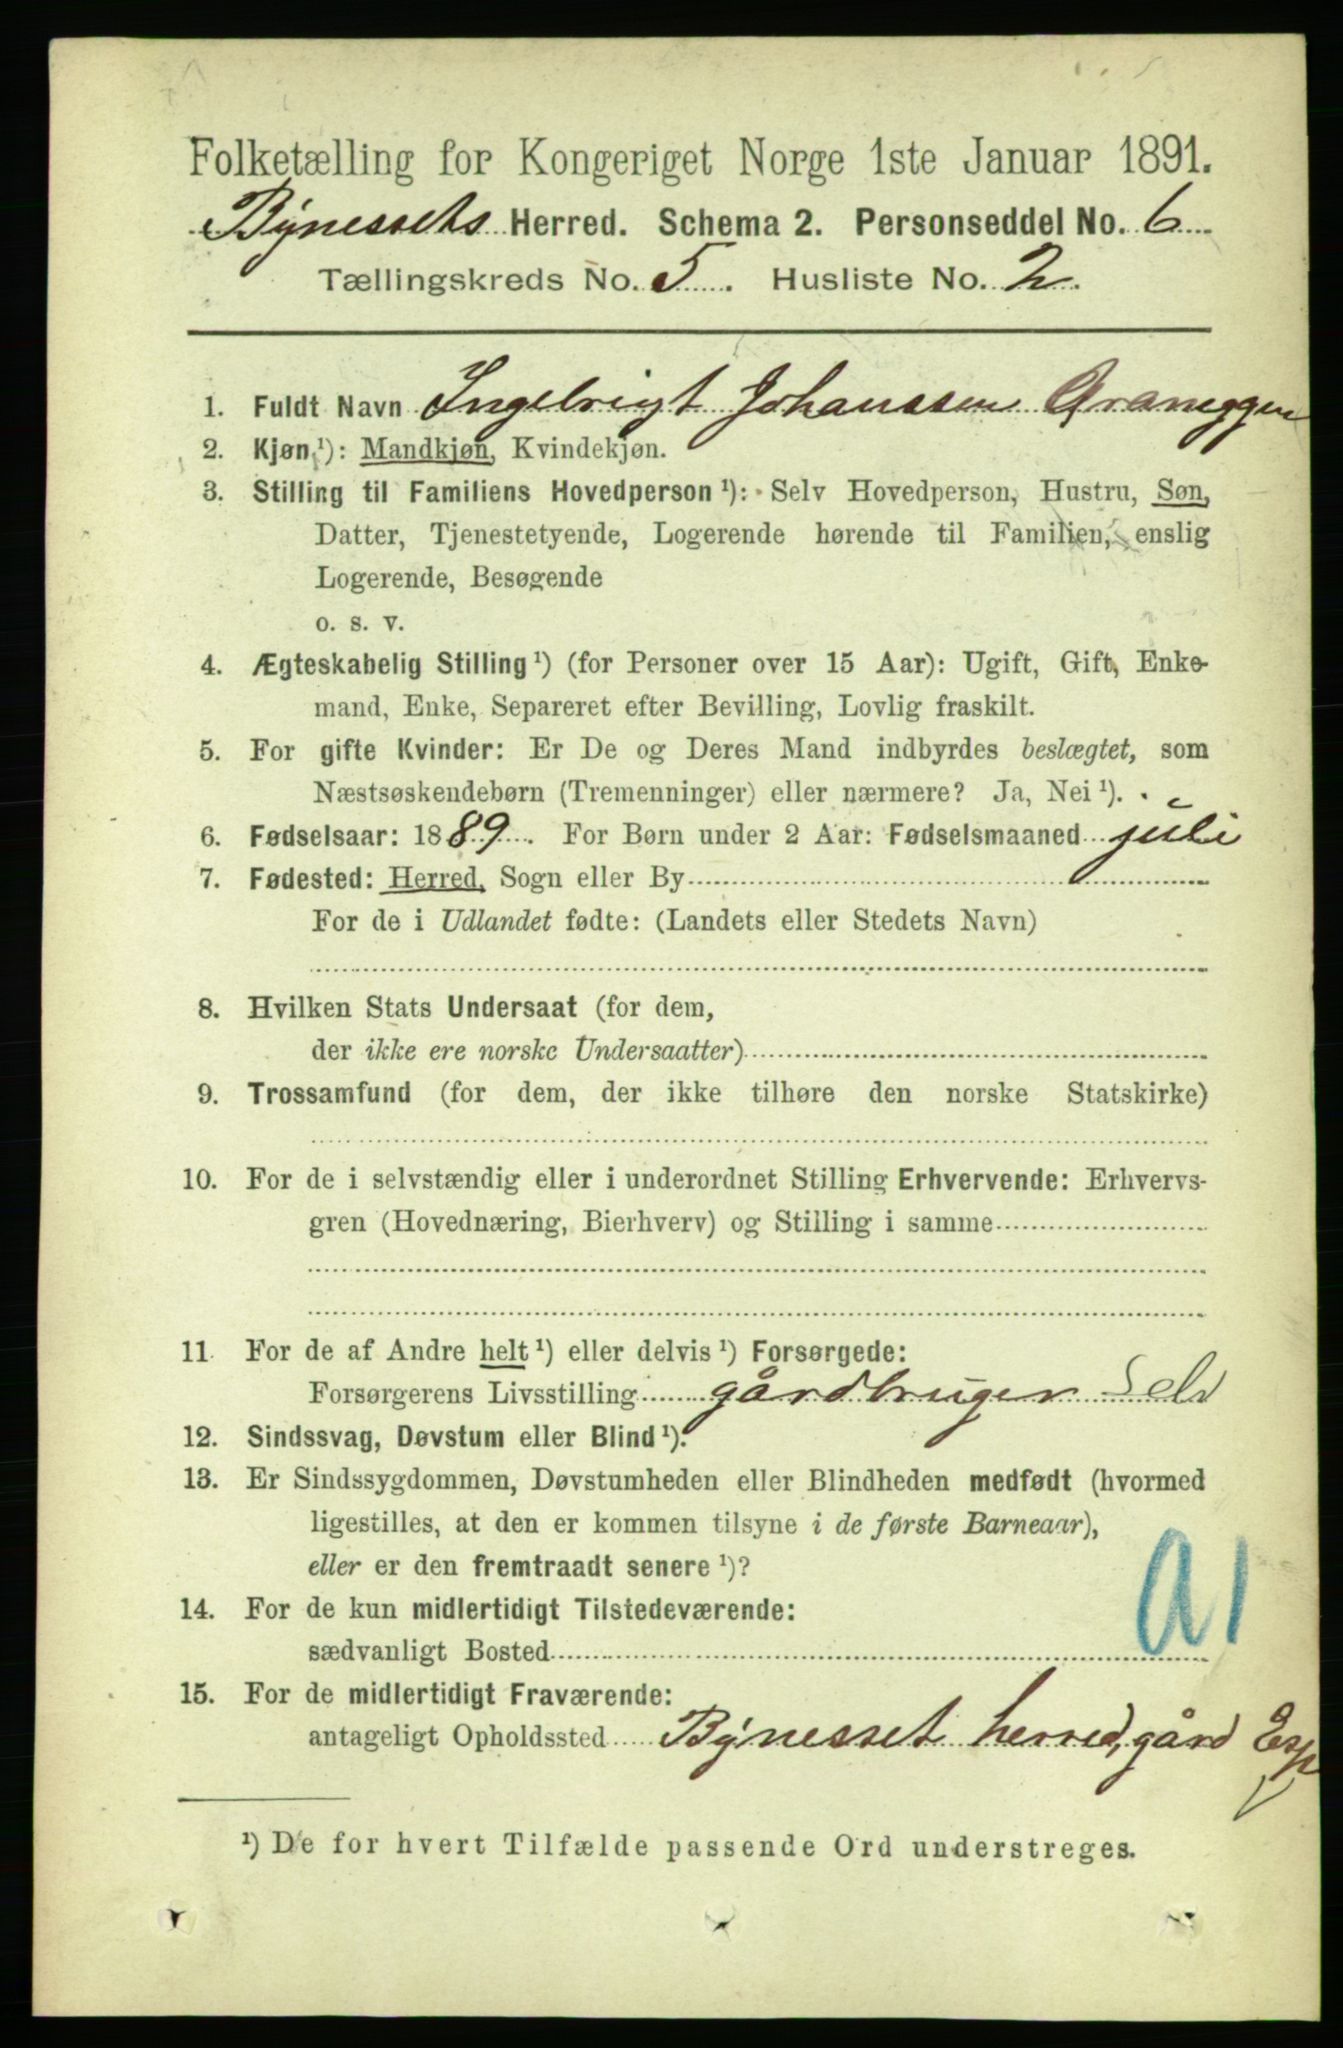 Folketælling for Kongeriget Norge 1ste Januar 1891.
Bynessets Herred. Schema 2. Personseddel No. 6
Tællingskreds No. 5. Husliste No. 2.
1. Fuldt Navn Ingebrigt Johanssen Graneggen
2. Kjøn ¹): Mandkjøn, Kvindekjøn.
3. Stilling til Familiens Hovedperson ¹): Selv Hovedperson, Hustru, Søn,
Datter, Tjenestetyende, Logerende hørende til Familien, enslig
Logerende, Besøgende
o. s. v.
4. Ægteskabelig Stilling ¹) (for Personer over 15 Aar): Ugift, Gift, Enke-
mand, Enke, Separeret efter Bevilling, Lovlig fraskilt.
5. For gifte Kvinder: Er De og Deres Mand indbyrdes beslægtet, som
Næstsøskendebørn (Tremenninger) eller nærmere? Ja, Nei ¹).
6. Fødselsaar: 1889. For Børn under 2 Aar: Fødselsmaaned juli
7. Fødested: Herred, Sogn eller By
For de i Udlandet fødte: (Landets eller Stedets Navn)
8. Hvilken Stats Undersaat (for dem,
der ikke ere norske Undersaatter)
9. Trossamfund (for dem, der ikke tilhøre den norske Statskirke)
10. For de i selvstændig eller i underordnet Stilling Erhvervende: Erhvervs-
gren (Hovednæring, Bierhverv) og Stilling i samme
11. For de af Andre helt ¹) eller delvis ¹) Forsørgede:
Forsørgerens Livsstilling gårdbruger Selv
12. Sindssvag, Døvstum eller Blind ¹).
13. Er Sindssygdommen, Døvstumheden eller Blindheden medfødt (hvormed
ligestilles, at den er kommen tilsyne i de første Barneaar),
eller er den fremtraadt senere ¹)?
14. For de kun midlertidigt Tilstedeværende:
sædvanligt Bosted
a1
15. For de midlertidigt Fraværende:
antageligt Opholdssted Bynesset herred, gård Esp
¹) De for hvert Tilfælde passende Ord understreges.